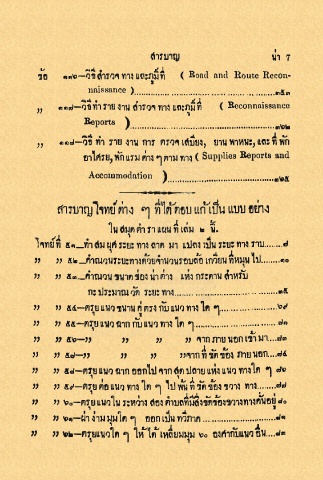 สารบาญ น่า 7
ข้อ ๑๑๖—วิธี สำรวจ ทาง และภูมิ์ที่ ( Road and Route Recon-
naissance )
„ ๑๑๗—วิธี ทำ ราย งาน สำรวจ ทาง และภูมิ์ ที่ ( Reconnaissance
Reports )
„ ๑๑๘—วิธี ทำ ราย งาน การ ตรวจ เสบียง, ยาน พาหนะ, และ ที่ พัก
อาไศรย, พักแรม ต่าง ๆ ตาม ทาง ( Supplies Reports and
Accommodation )
สารบาญ โจทย์ ต่าง ๆ ที่ ได้ ตอบ แก้ เป็น แบบ อย่าง
ใน สมุด ตำรา แผน ที่ เล่ม ๒ นี้.
โจทย์ที่ ๕๑—ทำ สมมุติ ระยะ ทาง ลาด มา แปลง เป็น ระยะ ทาง ราบ
„ „ ๕๒—คำณวนระยะทางด้วยจำนวนรอบล้อ เกวียน ที่หมุน ไป ๑๐
„ „ ๕๓—คำณวน ขนาด ช่อง น่าต่าง แห่ง กระดาน สำหรับ
กะ ประมาณ วัด ระยะ ทาง
„ „ ๕๔—ตรุยแนว ขนาน คู่ ตรง กับ แนว ทาง ใด ๆ ๖๙
„ „ ๕๕—ตรุยแนว ฉาก กับ แนว ทาง ใด ๆ ๗๑
„ „ ๕๖—„ „ „ „ จาก ภาย นอก เข้า มา ๗๓
„ „ ๕๗—„ „ „ „จาก ที่ ขัด ข้อง ภาย นอก
„ „ ๕๘—ตรุยแนว ฉาก ออกไป จาก สุด ปลาย แห่ง แนว ทาง ใด ๆ
„ „ ๕๙—ตรุย ต่อ แนว ทาง ใด ๆ ไป พ้น ที่ ขัด ข้อง ขวาง ทาง
„ „ ๖๐—ตรุยแนวใน ระหว่าง สอง ตำบลที่มีสิ่งขัดข้องขวางทางคั่นอยู่
„ „ ๖๑—ผ่า ง่าม มุมใด ๆ ออก เป็น ทวีภาค
„ „ ๖๒—ตรุยแนวใด ๆ ให้ ได้ เหลี่ยมมุม ๖๐ องศากับแนว อื่น